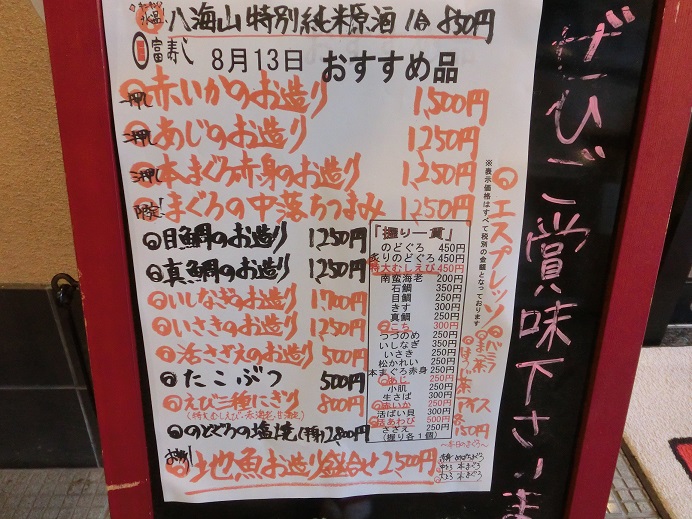 八海山 特別純米原酒 1合 850円
富寿し 8月13日 おすすめ品
一押 赤いかのお造り 1,500円
二押 あじのお造り 1,250円
三押 本まぐろ赤身のお造り 1,250円
限定! まぐろの中落ちつまみ 1,250円
目鯛のお造り 1,250円
真鯛のお造り 1,250円
いしなぎのお造り 1,700円
いさきのお造り 1,250円
活さざえのお造り 500円
たこぶつ 500円
えび三種にぎり 800円
(特大むしえび・赤海老・甘海老)
のどぐろの塩焼(1樽) 2,800円
地魚お造り盛合せ 2,500円
「握り一貫」
のどぐろ 450円
炙りのどぐろ 450円
特大むしえび 450円
南蛮海老 200円
石鯛 350円
目鯛 250円
きす 300円
真鯛 250円
こち 300円
つづのめ 250円
いしなぎ 350円
いさき 250円
松かれい 250円
本まぐろ赤身 250円
あじ 250円
小肌 250円
生さば 300円
赤いか 250円
活ばい貝 300円
活あわび 500円
さざえ 250円
(握り各1個)
※表示価格はすべて税別の金額となっております
エスプレッソ
バニラ
アイス
各150円
〜本日のまぐろ〜
ぜひご賞味下さいま